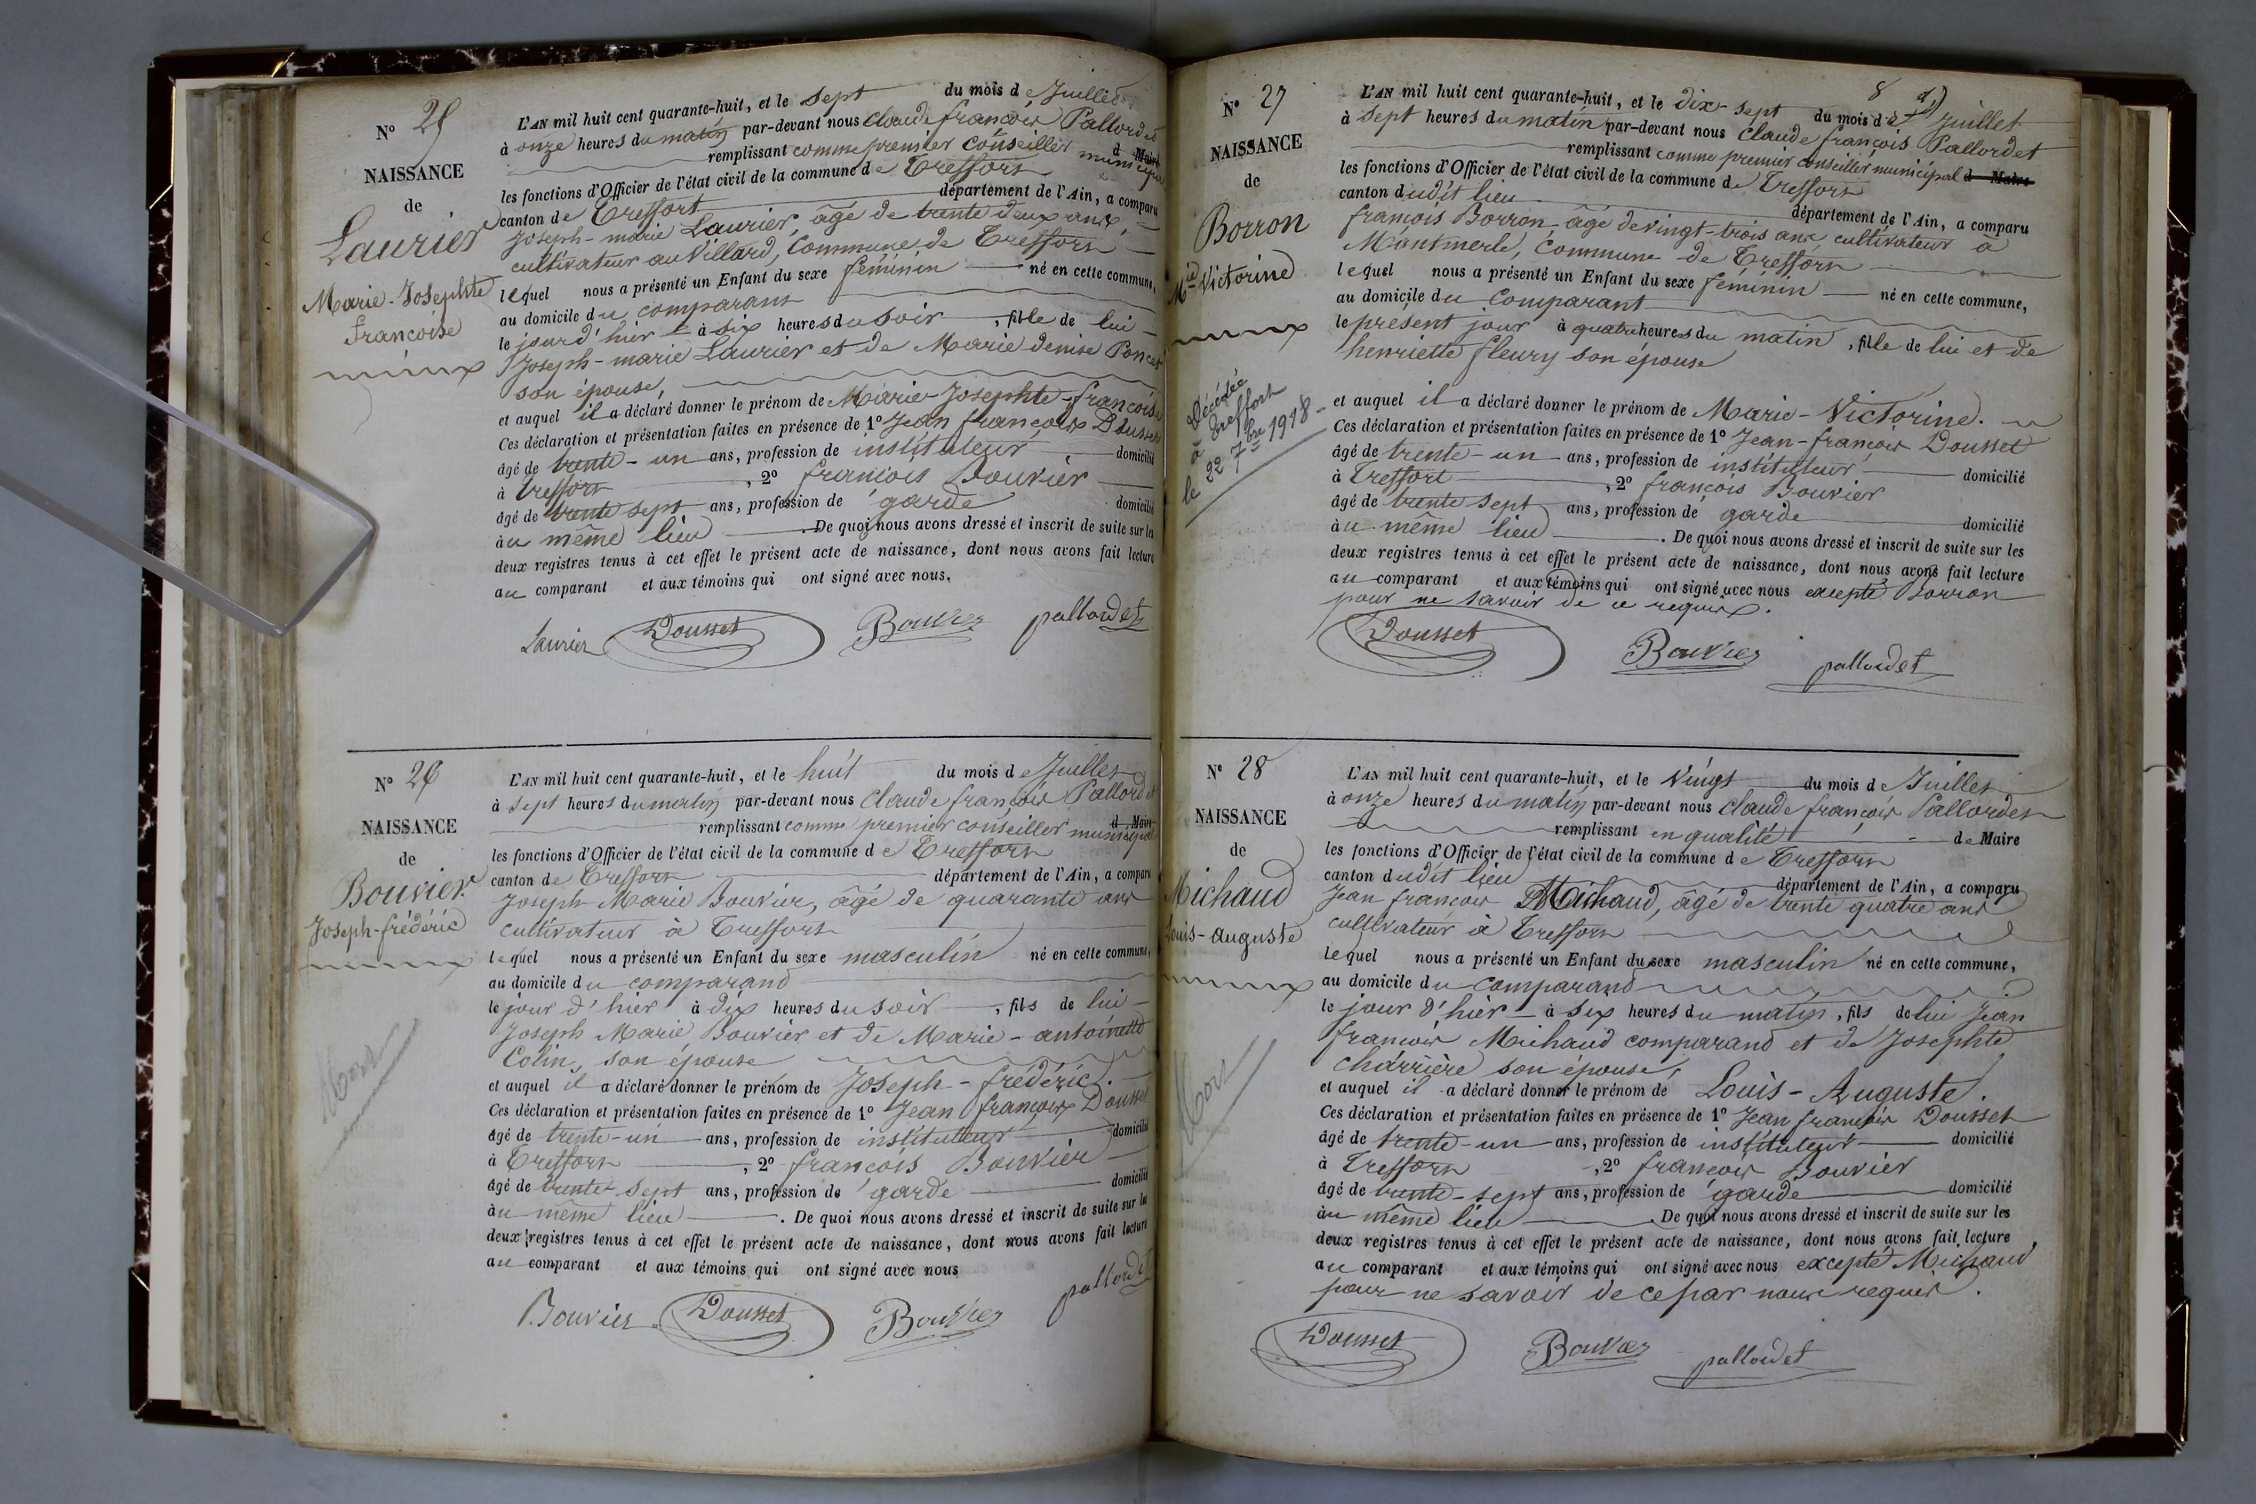 N° 25
NAISSANCE
de
Laurier
Marie-Josephte
françoise
L'AN mil huit cent quarante-huit, et le sept du mois de Juillet
à onze heures du matin par-devant nous Claude françois Pallordet
remplissant comme premier conseiller municipal d Maire
les fonctions d'Officier de l'état civil de la commune de Treffort
canton de Treffort département de l'Ain, a comparu
Joseph-marie Laurier, âgé de trente deux ans,
cultivateur au Villard, Commune de Treffort
lequel nous a présenté un Enfant du sexe féminin né en cette commune,
au domicile du comparant
le jour d'hier à six heures du soir, fille de lui
Joseph-marie Laurier et de Marie denise Poncet
son épouse,
et auquel il a déclaré donner le prénom de Marie-Josephte-françoise
Ces déclaration et présentation faites en présence de 1° Jean françois Dousset
âgé de trente-un ans, profession de instituteur domicilié
à Treffort, 2° françois Bouvier
âgé de trente sept ans, profession de garde domicilié
au même lieu. De quoi nous avons dressé et inscrit de suite sur les
deux registres tenus à cet effet le présent acte de naissance, dont nous avons fait lecture
au comparant et aux témoins qui ont signé avec nous.
Laurier Dousset Bouvier pallordet
N° 26
NAISSANCE
de
Bouvier
Joseph-frédéric
Mort
L'AN mil huit cent quarante-huit, et le huit du mois de Juillet
à sept heures du matin par-devant nous Claude françois Pallordet
remplissant comme premier conseiller municipal d Maire
les fonctions d'Officier de l'état civil de la commune de Treffort
canton de Treffort département de l'Ain, a comparu
Joseph Marie Bouvier, âgé de quarante ans
cultivateur à Treffort
lequel nous a présenté un Enfant du sexe masculin né en cette commune,
au domicile du comparand
le jour d'hier à dix heures du soir, fils de lui
Joseph Marie Bouvier et de Marie-antoinette
Colin, son épouse
et auquel il a déclaré donner le prénom de Joseph-frédéric.
Ces déclaration et présentation faites en présence de 1° Jean françois Dousset
âgé de trente-un ans, profession de instituteur domicilié
à Treffort, 2° françois Bouvier
âgé de trente sept ans, profession de garde domicilié
au même lieu. De quoi nous avons dressé et inscrit de suite sur les
deux registres tenus à cet effet le présent acte de naissance, dont nous avons fait lecture
au comparant et aux témoins qui ont signé avec nous
Bouvier Dousset Bouvier pallordet
N° 27
NAISSANCE
de
Borron
Mie Victorine
Décédée
à Treffort
le 22 7bre 1918
8
L'AN mil huit cent quarante-huit, et le dix-sept du mois de Juillet
à sept heures du matin par-devant nous Claude françois Pallordet
remplissant comme premier conseiller municipal d Maire
les fonctions d'Officier de l'état civil de la commune de Treffort
canton dudit lieu département de l'Ain, a comparu
françois Borron âgé de vingt-trois ans cultivateur à
Montmerle, Commune de Treffort
lequel nous a présenté un Enfant du sexe féminin né en cette commune,
au domicile du Comparant
le présent jour à quatre heures du matin, fille de lui et de
henriette fleury son épouse
et auquel il a déclaré donner le prénom de Marie-Victorine.
Ces déclaration et présentation faites en présence de 1° Jean-françois Dousset
âgé de trente-un ans, profession de instituteur domicilié
à Treffort, 2° françois Bouvier
âgé de trente sept ans, profession de garde domicilié
au même lieu. De quoi nous avons dressé et inscrit de suite sur les
deux registres tenus à cet effet le présent acte de naissance, dont nous avons fait lecture
au comparant et aux témoins qui ont signé avec nous excepté Borron
pour ne savoir de ce requis.
Dousset Bouvier pallordet
N° 28
NAISSANCE
de
Michaud
Louis-auguste
Mort
L'AN mil huit cent quarante-huit, et le Vingt du mois de Juillet
à onze heures du matin par-devant nous Claude françois Pallordet
remplissant en qualité de Maire
les fonctions d'Officier de l'état civil de la commune de Treffort
canton dudit lieu département de l'Ain, a comparu
Jean françois Michaud, âgé de trente quatre ans
cultivateur à Treffort
lequel nous a présenté un Enfant du sexe masculin né en cette commune,
au domicile du comparand
le jour d'hier à six heures du matin, fils de lui Jean
françois Michaud comparand et de Josephte
Charrière son épouse,
et auquel il a déclaré donner le prénom de Louis-Auguste.
Ces déclaration et présentation faites en présence de 1° Jean françois Dousset
âgé de trente-un ans, profession de instituteur domicilié
à Treffort, 2° françois Bouvier
âgé de trente-sept ans, profession de garde domicilié
au même lieu. De quoi nous avons dressé et inscrit de suite sur les
deux registres tenus à cet effet le présent acte de naissance, dont nous avons fait lecture
au comparant et aux témoins qui ont signé avec nous excepté Michaud
pour ne savoir de ce par nous requis.
Dousset Bouvier pallordet